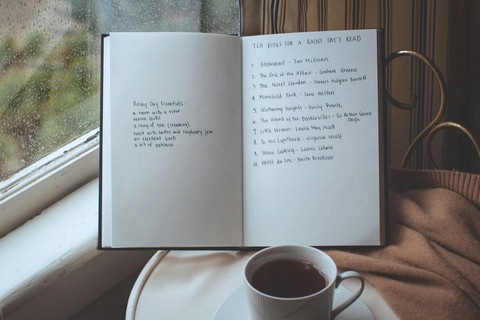 Rainy Day Essentials:
a room with a view
warm socks
a mug of tea (steaming)
toast with butter and raspberry jam
an excellent book
a bit of patience
TEN BOOKS FOR A RAINY DAY'S READ
1. Atonement - Ian McEwan
2. The End of the Affair - Graham Greene
3. The Secret Garden - Frances Hodgson Burnett
4. Mansfield Park - Jane Austen
5. Wuthering Heights - Emily Brontë
6. The Hound of the Baskervilles - Sir Arthur Conan
Doyle
7. Little Women - Louisa May Alcott
8. To the Lighthouse - Virginia Woolf
9. Home Cooking - Laurie Colwin
10. Hotel du Lac - Anita Brookner